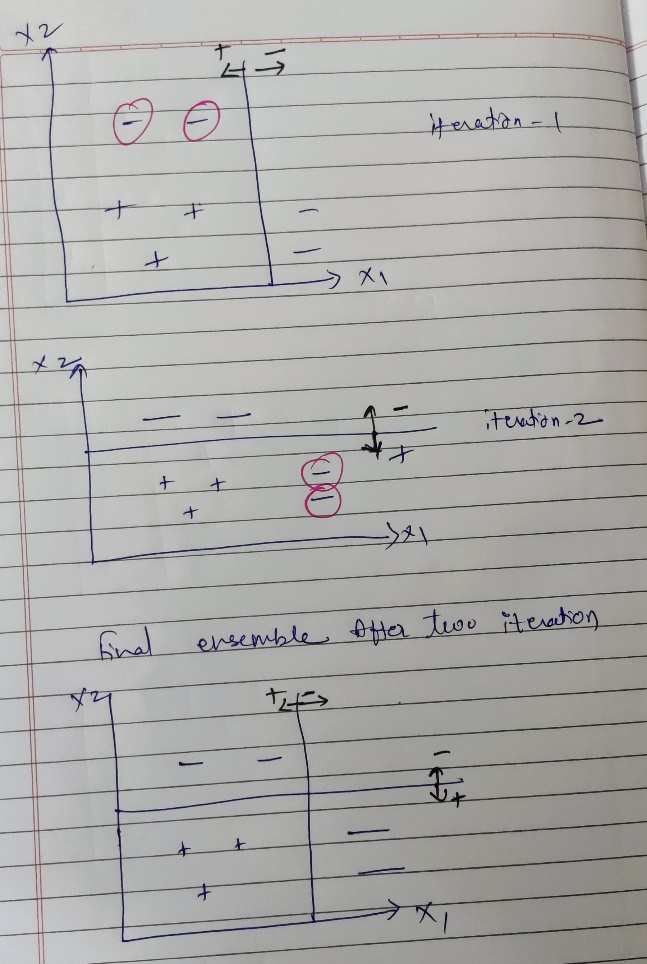 x2
+ -
- -
iteration-1
+ + -
+ -
x1
x2
- - -
iteration-2
+
+ + -
+ -
x1
Final ensemble After two iteration
x2
+ -
- - -
+
+ + -
+ -
x1